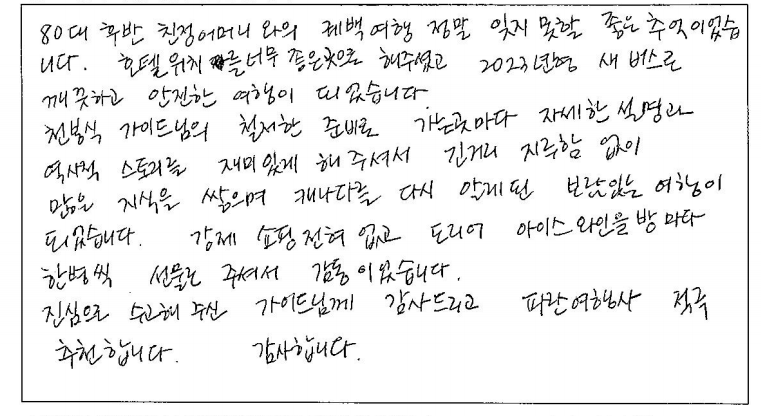 80대 후반 친정어머니 와의 퀘백여행 정말 잊지 못할 좋은 추억이었습
니다. 호텔위치를 너무 좋은곳으로 해주셨고 2023년형 새 버스로
깨끗하고 안전한 여행이 되었습니다.
천봉식 가이드님의 철저한 준비로 가는곳마다 자세한 설명과
역사적 스토리를 재미있게 해 주셔서 긴거리 지루함 없이
많은 지식을 쌓으며 캐나다를 다시 알게된 보람있는 여행이
되었습니다. 강제 쇼핑 전혀 없고 도리어 아이스와인을 방 마다
한병씩 선물로 주셔서 감동이었습니다.
진심으로 수고해 주신 가이드님께 감사드리고 파란여행사 적극
추천합니다. 감사합니다.